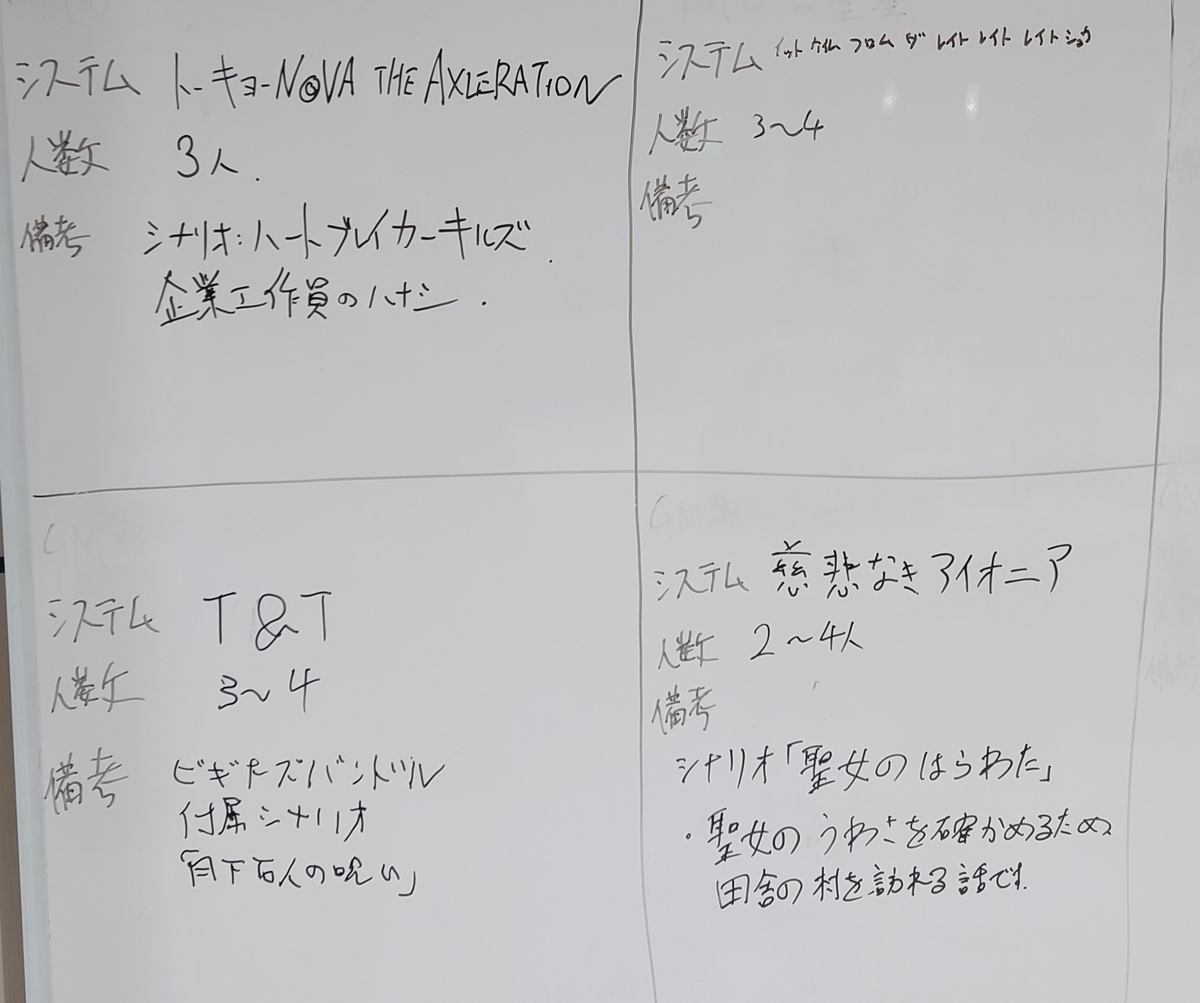 システム トーキョーN◎VA THE AXLERATION
人数 3人.
備考 シナリオ:ハートブレイカーキルズ.
企業工作員のハナシ.
システム イット ケイム フロム ダ レイト レイト レイト ショウ
人数 3~4
備考
GM名
システム T&T
人数 3~4
備考 ビギナーズバンドル
付属シナリオ
「月下百人の呪い」
GM名
システム 慈悲なきアイオニア
人数 2~4人
備考
シナリオ「聖女のはらわた」
・聖女のうわさを確かめるため
田舎の村を訪れる話です.